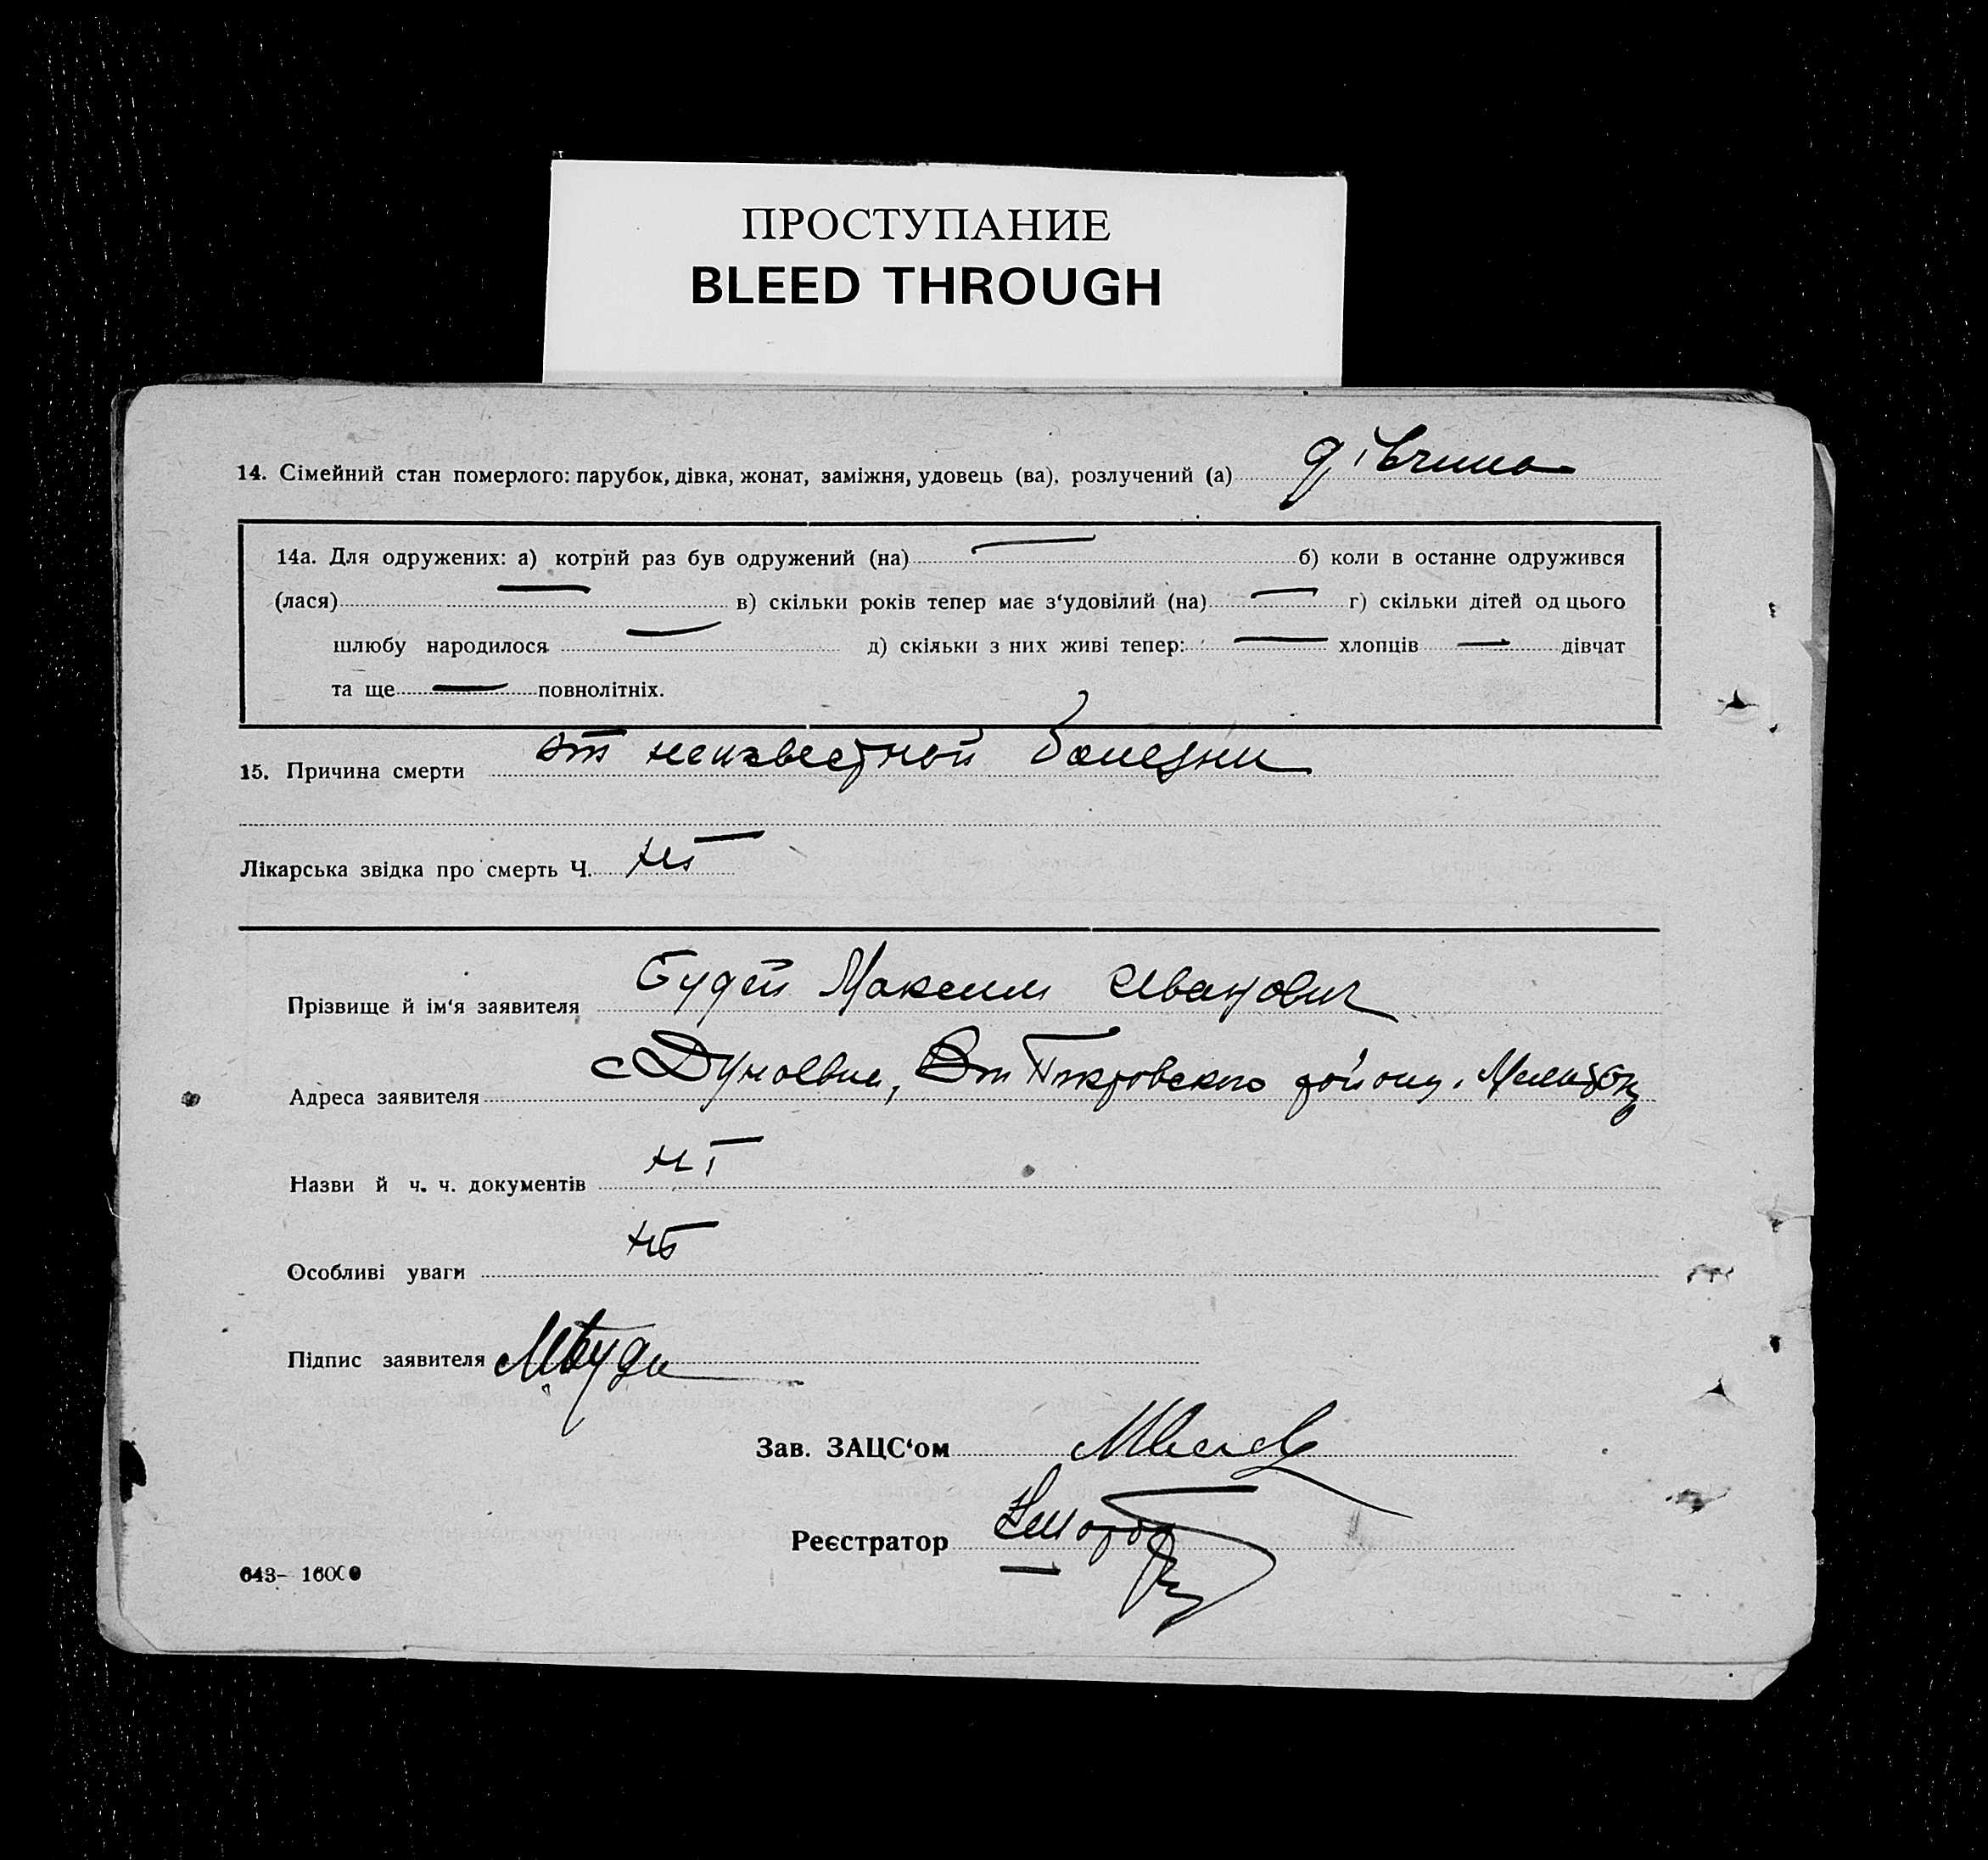 ПРОСТУПАНИЕ
BLEED THROUGH
14. Сімейний стан померлого: парубок, дівка, жонат, заміжня, удовець (ва), розлучений (а) дівчина
14а. Для одружених: а) котрий раз був одружений (на) — б) коли в останне одружився
(лася) — в) скільки років тепер має з‘удовілий (на) — г) скільки дітей од цього
шлюбу народилося — д) скільки з них живі тепер: — хлопців — дівчат
та ще — повнолітніх.
15. Причина смерти от неизвестной болезни
Лікарська звідка про смерть Ч.
Прізвище й ім‘я заявителя Будей Максим Иванович
Адреса заявителя с Дунаевка, Покровского району
Назви й ч. ч. документів
Особливі уваги
Підпис заявителя
Зав. ЗАЦС‘ом
Реєстратор
643– 16000